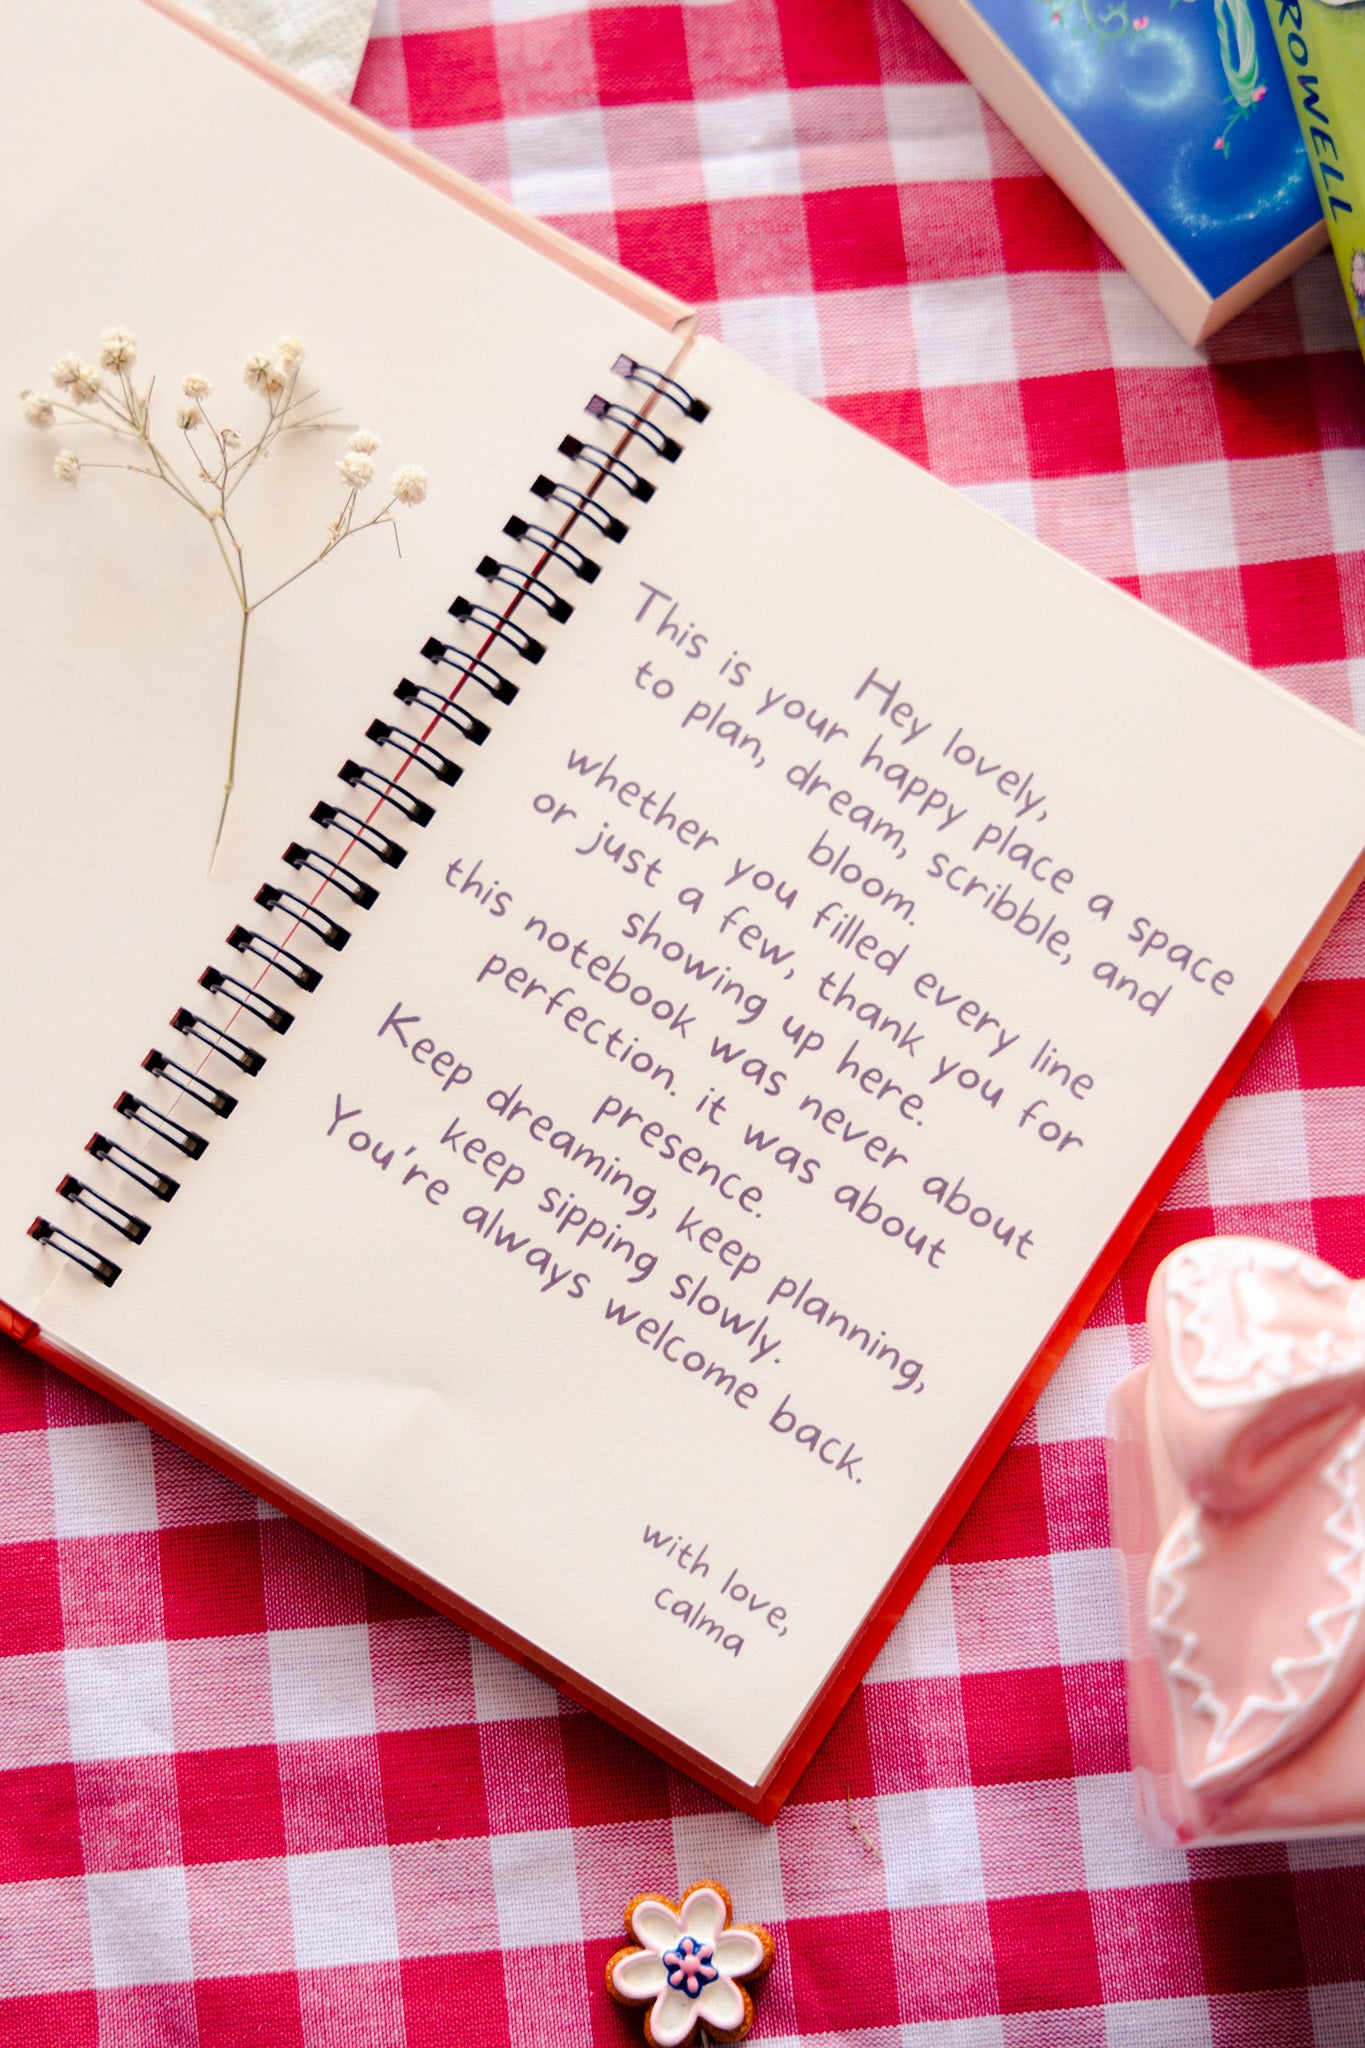 Hey lovely,
This is your happy place a space
to plan, dream, scribble, and
bloom.
whether you filled every line
or just a few, thank you for
showing up here.
this notebook was never about
perfection. it was about
presence.
Keep dreaming, keep planning,
keep sipping slowly.
You're always welcome back.
with love,
calma
ROWELL